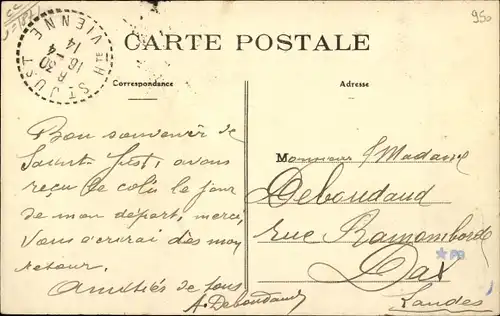 950
ST JUST
Hte VIENNE
16 30
8 4
14
CARTE POSTALE
Correspondance
Adresse
Bon souvenir de
Saint Just, avons
reçu le colis le jour
de mon départ, merci,
Vous écrirai dès mon
retour.
Amitiés de tous
A. Deboudaud
Monsieur / Madame
Deboudaud
rue Ramonbordes
Dax
Landes
PB